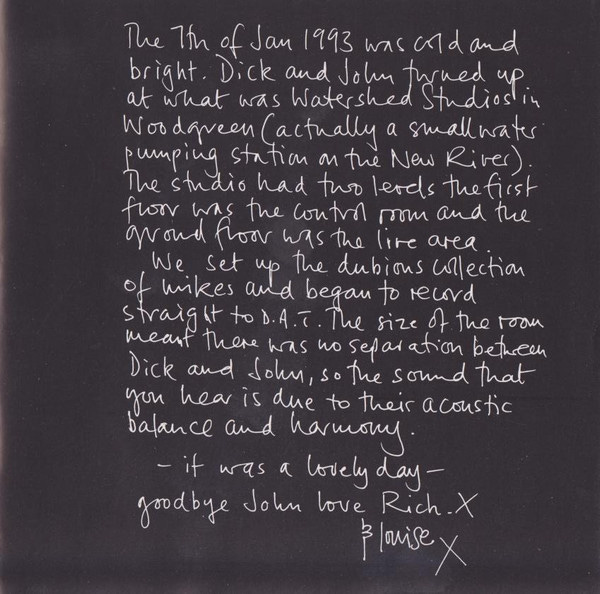 The 7th of Jan 1993 was cold and
bright. Dick and John turned up
at what was Watershed Studios in
Woodgreen (actually a small water
pumping station on the New River).
The studio had two levels the first
floor was the control room and the
ground floor was the live area.
We set up the dubious collection
of mikes and began to record
straight to D.A.T. The size of the room
meant there was no separation between
Dick and John, so the sound that
you hear is due to their acoustic
balance and harmony.
- it was a lovely day -
goodbye John love Rich. X
& louise X